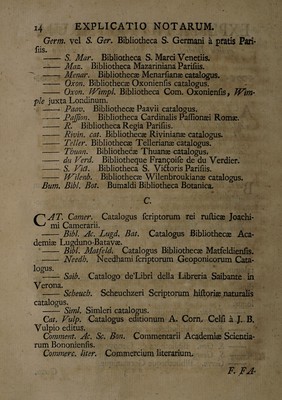 14 EXPLICATIO NOTARUM.
Germ. vel S. Ger. Bibliotheca S. Germani à pratis Pari-
siis.
—— S. Mar. Bibliotheca S. Marci Venetiis.
—— Maz. Bibliotheca Mazariniani Parisiis.
—— Menar. Bibliothecæ Menarsianæ catalogus.
—— Oxon. Bibliothecæ Oxoniensis catalogus.
—— Oxon. Wimpl. Bibliotheca Com. Oxoniensis, Wim-
ple juxta Londinum.
—— Paav. Bibliothecæ Paavii catalogus.
—— Passion. Bibliotheca Cardinalis Passionæi Romæ.
—— R. Bibliotheca Regia Parisiis.
—— Rivin. cat. Bibliothecæ Rivinianæ catalogus.
—— Teller. Bibliothecæ Tellerianæ catalogus.
—— Thuan. Bibliothecæ Thuanæ catalogus.
—— du Verd. Bibliotheque Françoise de du Verdier.
—— S. Vict. Bibliotheca S. Victoris Parisiis.
—— Wilenb. Bibliothecæ Wilenbroukianæ catalogus.
Bum. Bibl. Bot. Bumaldi Bibliotheca Botanica.
C.
CAT. Camer. Catalogus scriptorum rei rusticæ Joachi-
mi Camerarii.
—— Bibl. Ac. Lugd. Bat. Catalogus Bibliothecæ Aca-
demiæ Lugduno-Batavæ.
—— Bibl. Matsfeld. Catalogus Bibliothecæ Matsfeldiensis.
—— Needh. Needhami scriptorum Geoponicorum Cata-
logus.
—— Saib. Catalogo de'Libri della Libreria Saibante in
Verona.
—— Scheuch. Scheuchzeri Scriptorum historiæ naturalis
catalogus.
—— Siml. Simleri catalogus.
Cat. Vulp. Catalogus editionum A. Corn. Celsi à J. B.
Vulpio editus.
Comment. Ac. Sc. Bon. Commentarii Academiæ Scientia-
rum Bononiensis.
Commerc. liter. Commercium literarium.
F. FA-